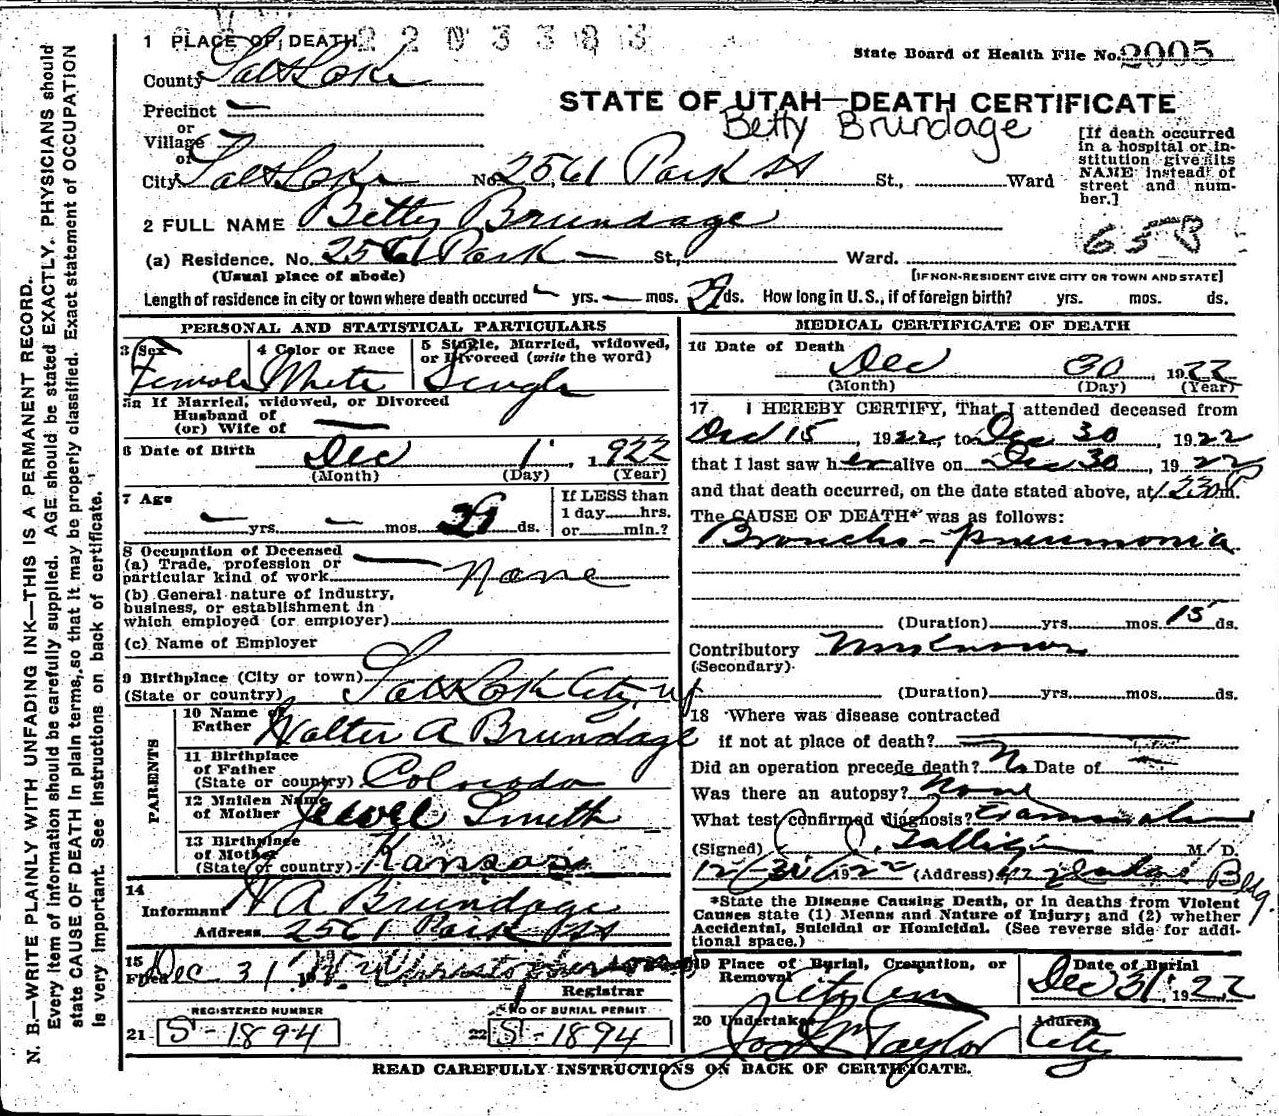 2203383
1 PLACE OF DEATH
State Board of Health File No. 2005
County Salt Lake
STATE OF UTAH—DEATH CERTIFICATE
Precinct —
Betty Brundage
or
Village
or
City Salt Lake No. 2561 Park St St., Ward
[If death occurred in a hospital or in-stitution give its NAME instead of street and num-ber.]
2 FULL NAME Betty Brundage
653
(a) Residence. No. 2561 Park — St., Ward.
(Usual place of abode) [IF NON-RESIDENT GIVE CITY OR TOWN AND STATE]
Length of residence in city or town where death occured — yrs. — mos. 29 ds. How long in U.S., if of foreign birth? yrs. mos. ds.
PERSONAL AND STATISTICAL PARTICULARS
3 Sex
Female
4 Color or Race
White
5 Single, Married, widowed,
or Divorced (write the word)
Single
5a If Married, widowed, or Divorced
Husband of
(or) Wife of —
6 Date of Birth Dec 1, 1922
(Month) (Day) (Year)
7 Age
— yrs. — mos. 29 ds.
If LESS than
1 day......hrs.
or......min.?
8 Occupation of Deceased
(a) Trade, profession or
particular kind of work — None
(b) General nature of industry,
business, or establishment in
which employed (or employer)
(c) Name of Employer
9 Birthplace (City or town)
(State or country) Salt Lake City, Ut
PARENTS
10 Name of
Father Walter A Brundage
11 Birthplace
of Father
(State or country) Colorado
12 Maiden Name
of Mother Jewel Smith
13 Birthplace
of Mother
(State or country) Kansas
14
Informant W A Brundage
Address 2561 Park St
15
Filed Dec 31
Registrar
REGISTERED NUMBER
21 S-1894
NO OF BURIAL PERMIT
22 S-1894
MEDICAL CERTIFICATE OF DEATH
16 Date of Death
Dec 30 1922
(Month) (Day) (Year)
17 I HEREBY CERTIFY, That I attended deceased from
Dec 15, 1922, to Dec 30, 1922
that I last saw her alive on Dec 30, 1922
and that death occurred, on the date stated above, at 1:30 P m.
The CAUSE OF DEATH* was as follows:
Broncho-pneumonia
(Duration) yrs. mos. 15 ds.
Contributory
(Secondary)
(Duration) yrs. mos. ds.
18 Where was disease contracted
if not at place of death? —
Did an operation precede death? No Date of —
Was there an autopsy? None
What test confirmed diagnosis? Examination
(Signed) M. D.
12/31/1922 (Address) Bldg.
*State the Disease Causing Death, or in deaths from Violent
Causes state (1) Means and Nature of Injury; and (2) whether
Accidental, Suicidal or Homicidal. (See reverse side for addi-
tional space.)
19 Place of Burial, Cremation, or
Removal City Cem
Date of Burial
Dec 31, 1922
20 Undertaker
Jos Wm Taylor
Address
City
READ CAREFULLY INSTRUCTIONS ON BACK OF CERTIFICATE.
N. B.—WRITE PLAINLY WITH UNFADING INK—THIS IS A PERMANENT RECORD.
Every item of information should be carefully supplied. AGE should be stated EXACTLY. PHYSICIANS should
state CAUSE OF DEATH in plain terms, so that it may be properly classified. Exact statement of OCCUPATION
is very important. See instructions on back of certificate.